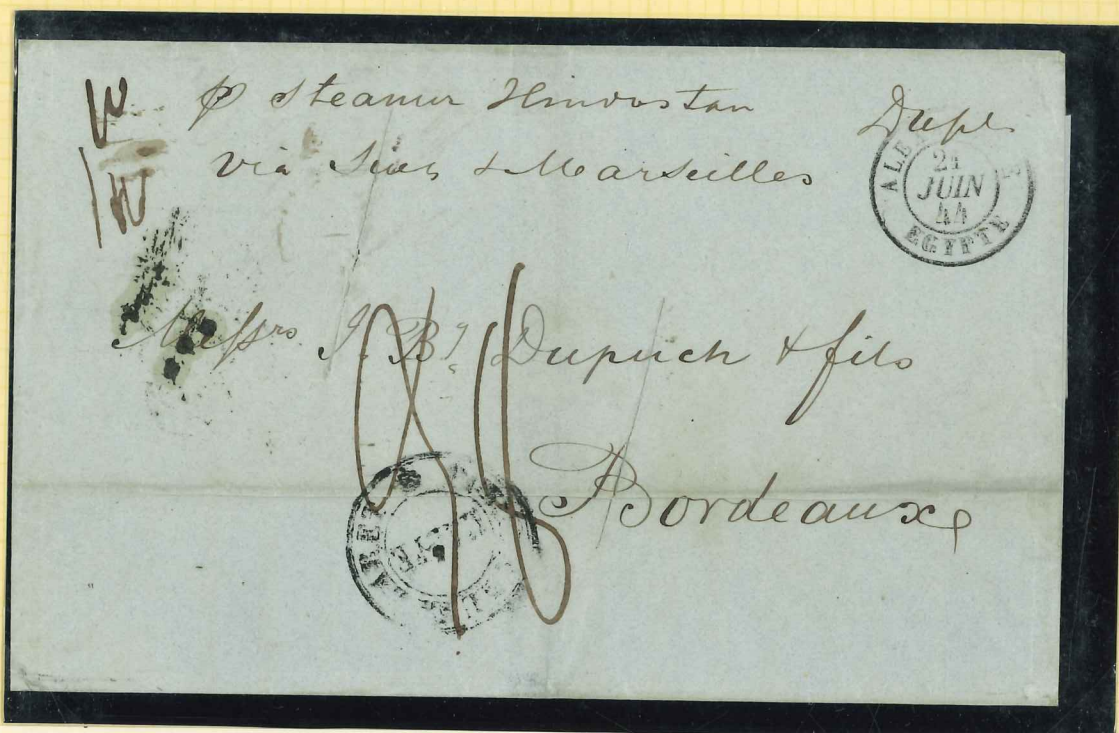 p steamer Hindostan
via Suez & Marseilles
Dupl
21
JUIN
44
EGYPTE
Messrs J. Bt Dupuch & fils
Bordeaux